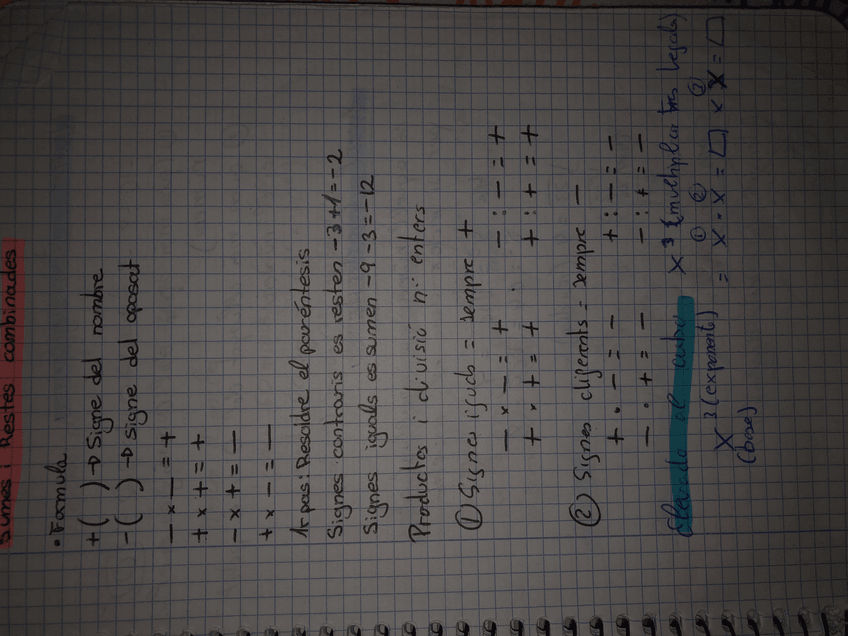 Sumes i Restes combinades
• Fórmula
+ ( ) → Signe del nombre
- ( ) → signe del oposat
- × - = +
+ × + = +
- × + = -
+ × - = -
1r pas: Resoldre el paréntesis
Signes contraris es resten -3+1=-2
Signes iguals es sumen -9-3=-12
Productos i divisió nº enters
① Signes iguals = sempre +
- × - = + - : - = +
+ · + = + + : + = +
② Signes diferents = sempre -
+ · - = - + : - = -
- · + = - - : + = -
Elevado al cubo X³ (multiplicar tres begads)
X³ (exponente) = X · X = □ × X = □
(base) ① ② ②